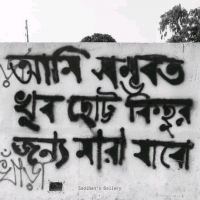 আমি সম্ভবত
খুব ছোট্ট কিছুর
জন্য মারা যাবো
Sadman's Gallery